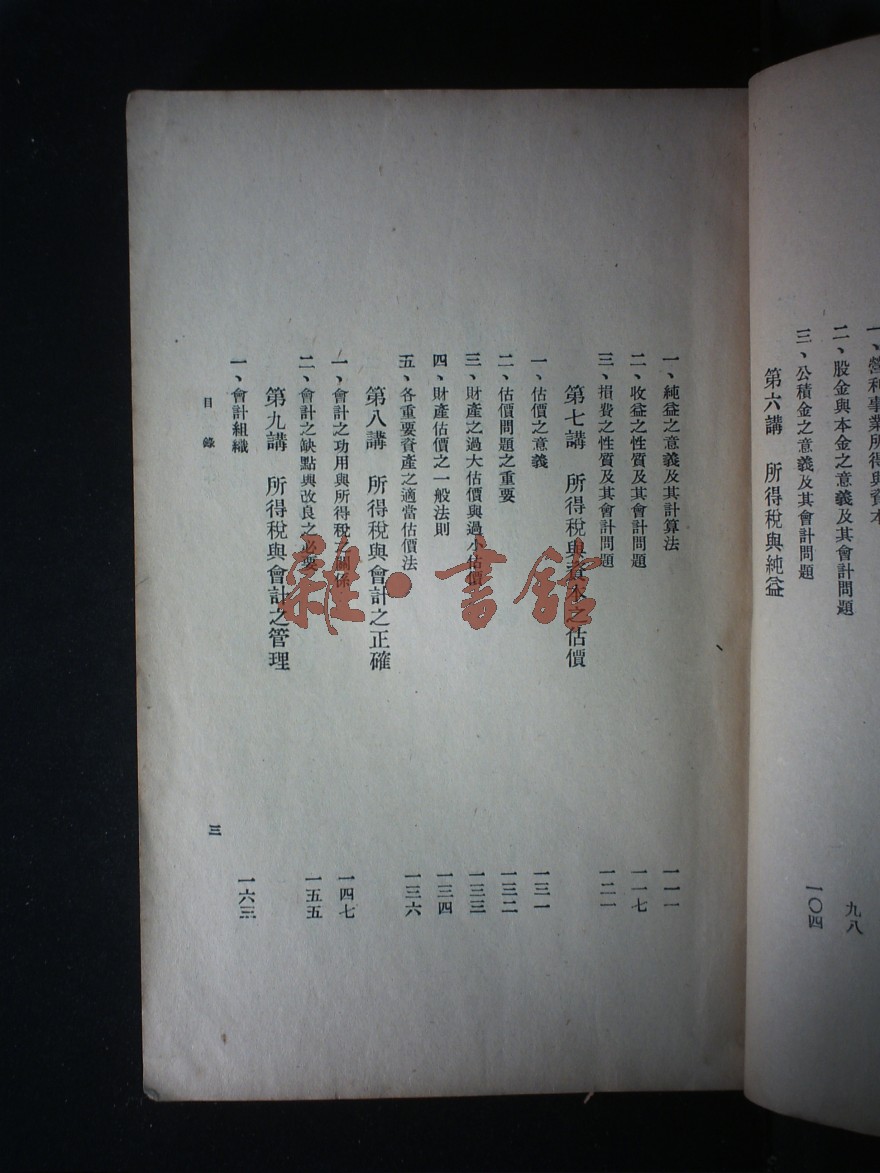 一、營利事業所得與資本
二、股金與本金之意義及其會計問題 九八
三、公積金之意義及其會計問題 一〇四
第六講 所得稅與純益
一、純益之意義及其計算法 一一一
二、收益之性質及其會計問題 一一七
三、損費之性質及其會計問題 一二一
第七講 所得稅與資本之估價
一、估價之意義 一三一
二、估價問題之重要 一三二
三、財產之過大估價與過小估價 一三三
四、財產估價之一般法則 一三四
五、各重要資產之適當估價法 一三六
第八講 所得稅與會計之正確
一、會計之功用與所得稅之關係 一四七
二、會計之缺點與改良之必要 一五五
第九講 所得稅與會計之管理
一、會計組織 一六三
目錄 三
雜·書館